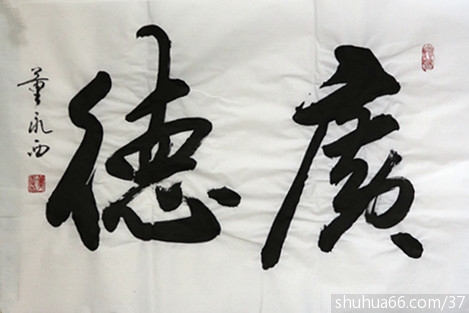 廣德
董永西
shuhua66.com/37